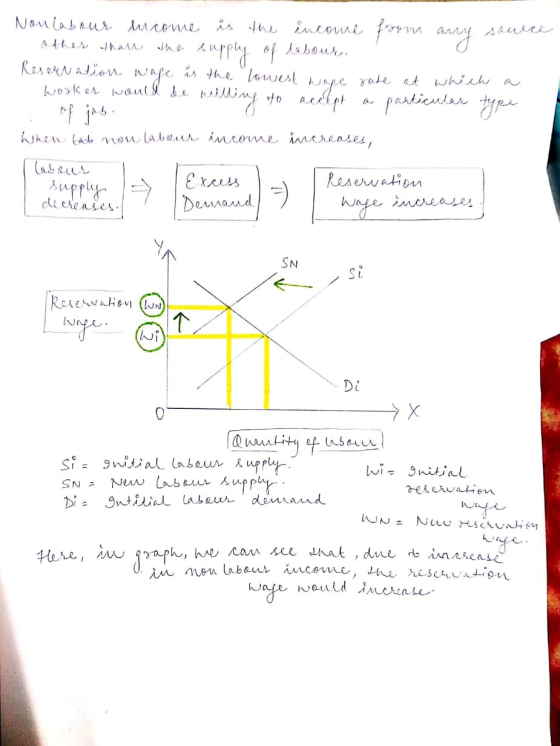 Non labour Income is the income from any source
other than the supply of labour.
Reservation wage is the lowest wage rate at which a
worker would be willing to accept a particular type
of job.
When lab non labour income increases,
Labour
supply
decreases.
⇒
Excess
Demand
⇒
Reservation
wage increases.
Y
SN
Si
Reservation
wage.
WN
Wi
Di
O
X
Quantity of labour
Si = Initial labour supply.
SN = New labour supply.
Di = Intitial labour demand
Wi = Initial
reservation
wage
WN = New reservation
wage.
Here, in graph, we can see that, due to increase
in non labour income, the reservation
wage would increase.